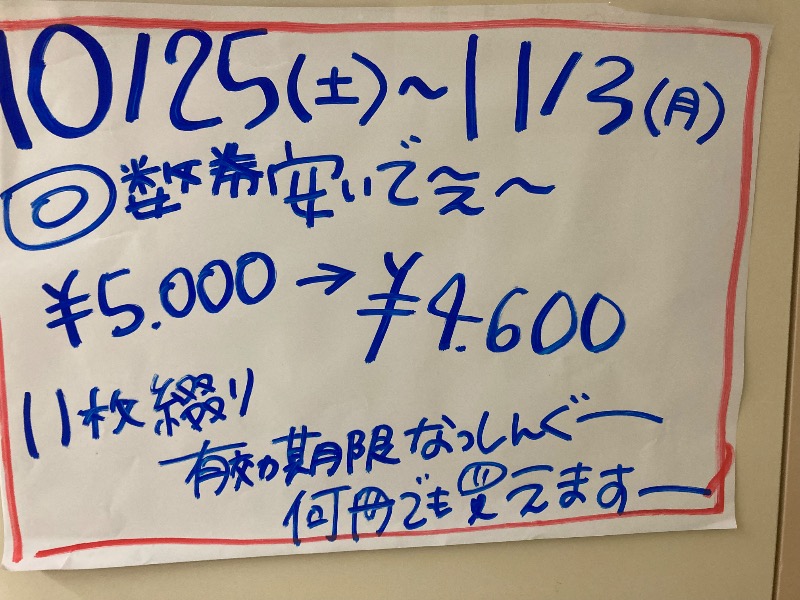 10/25(土)~11/3(月)
回数券安いで~え~
¥5.000→¥4.600
11枚綴り
有効期限なっしんぐー
何冊でも買えますー